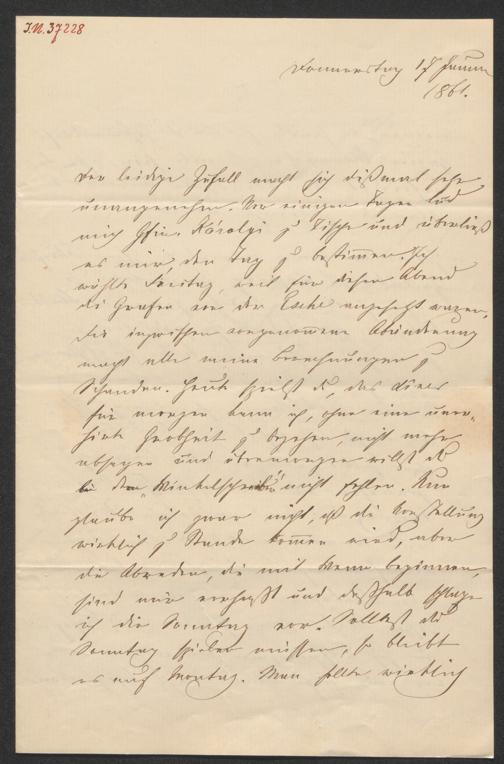 I.N. 37228
Donnerstag 17 Januar
1861.
Der leidige Zufall macht sich dißmal sehr
unangenehm. Vor einigen Tagen lud
mich Gfin. Károlyi zu Tische und überließ
es mir, den Tag zu bestimmen. Ich
wählte Freitag, weil für diesen Abend
die Grafen von der Esche angesetzt waren.
Die inzwischen vorgenommene Abänderung
macht alle meine Berechnungen zu
Schanden. Heute spielst du, das Diner
für morgen kann ich, ohne eine uner-
hörte Grobheit zu begehen, nicht mehr
absagen und übermorgen willst du
bei den "Winkelschreibern" nicht fehlen. Nun
glaube ich zwar nicht, daß die Vorstellung
wirklich zu Stande kommen wird, aber
die Abreden, die mit Wenn beginnen,
sind mir verhaßt und deßhalb schlage
ich dir Sonntag vor. Solltest du
Sonntag spielen müssen, so bleibt
es auf Montag. Man sollte wirklich